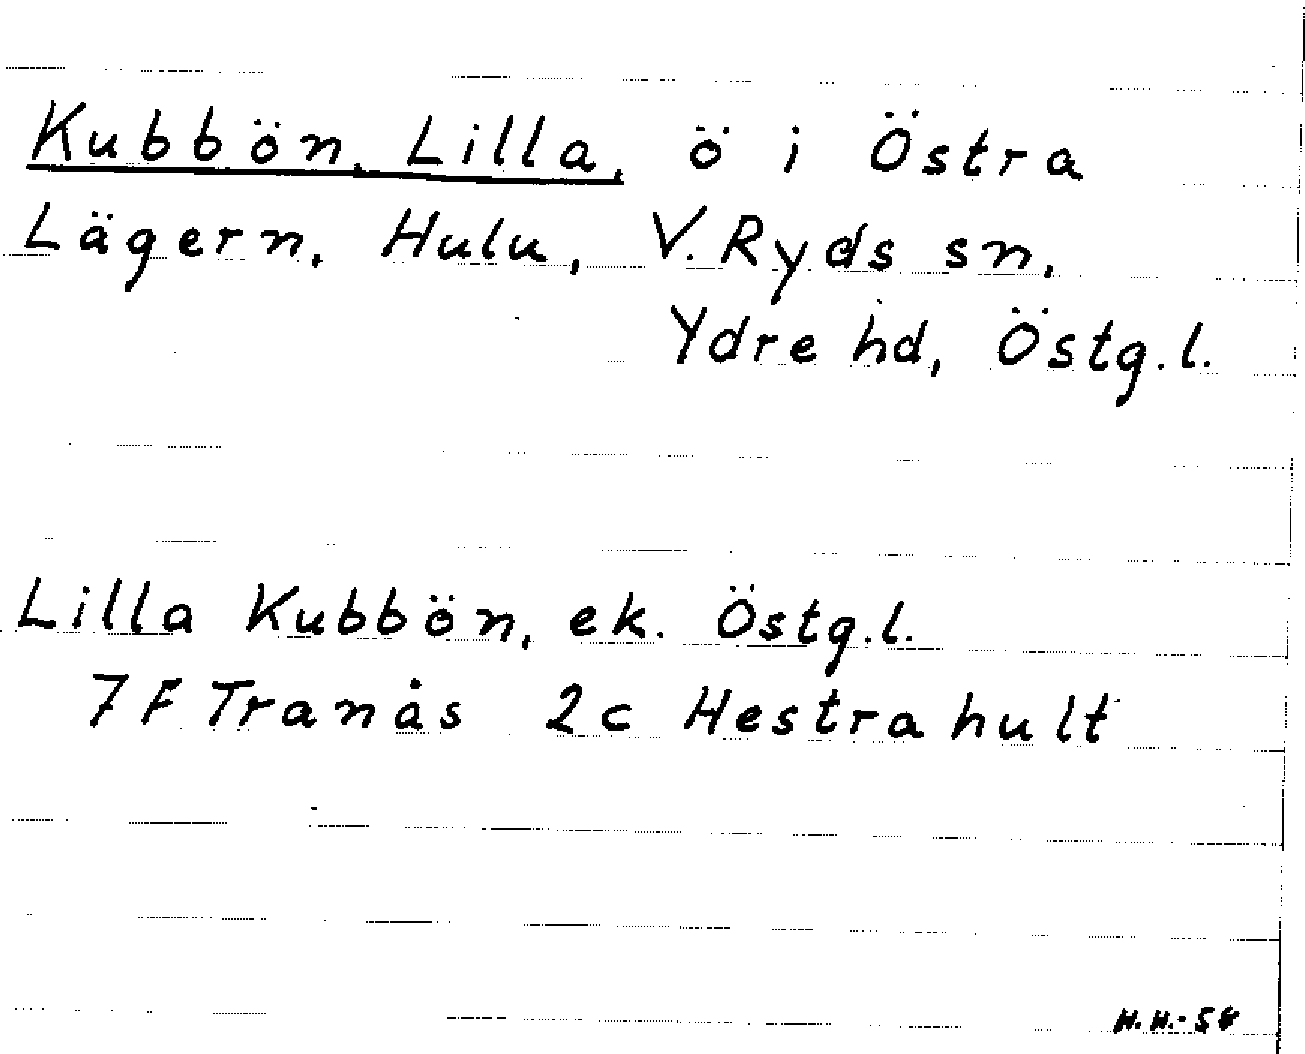 Kubbön, Lilla, ö i Östra
Lägern, Hulu, V. Ryds sn,
Ydre hd, Östg.l.
Lilla Kubbön, ek. Östg.l.
7F Tranås 2c Hestrahult
H.H.-58